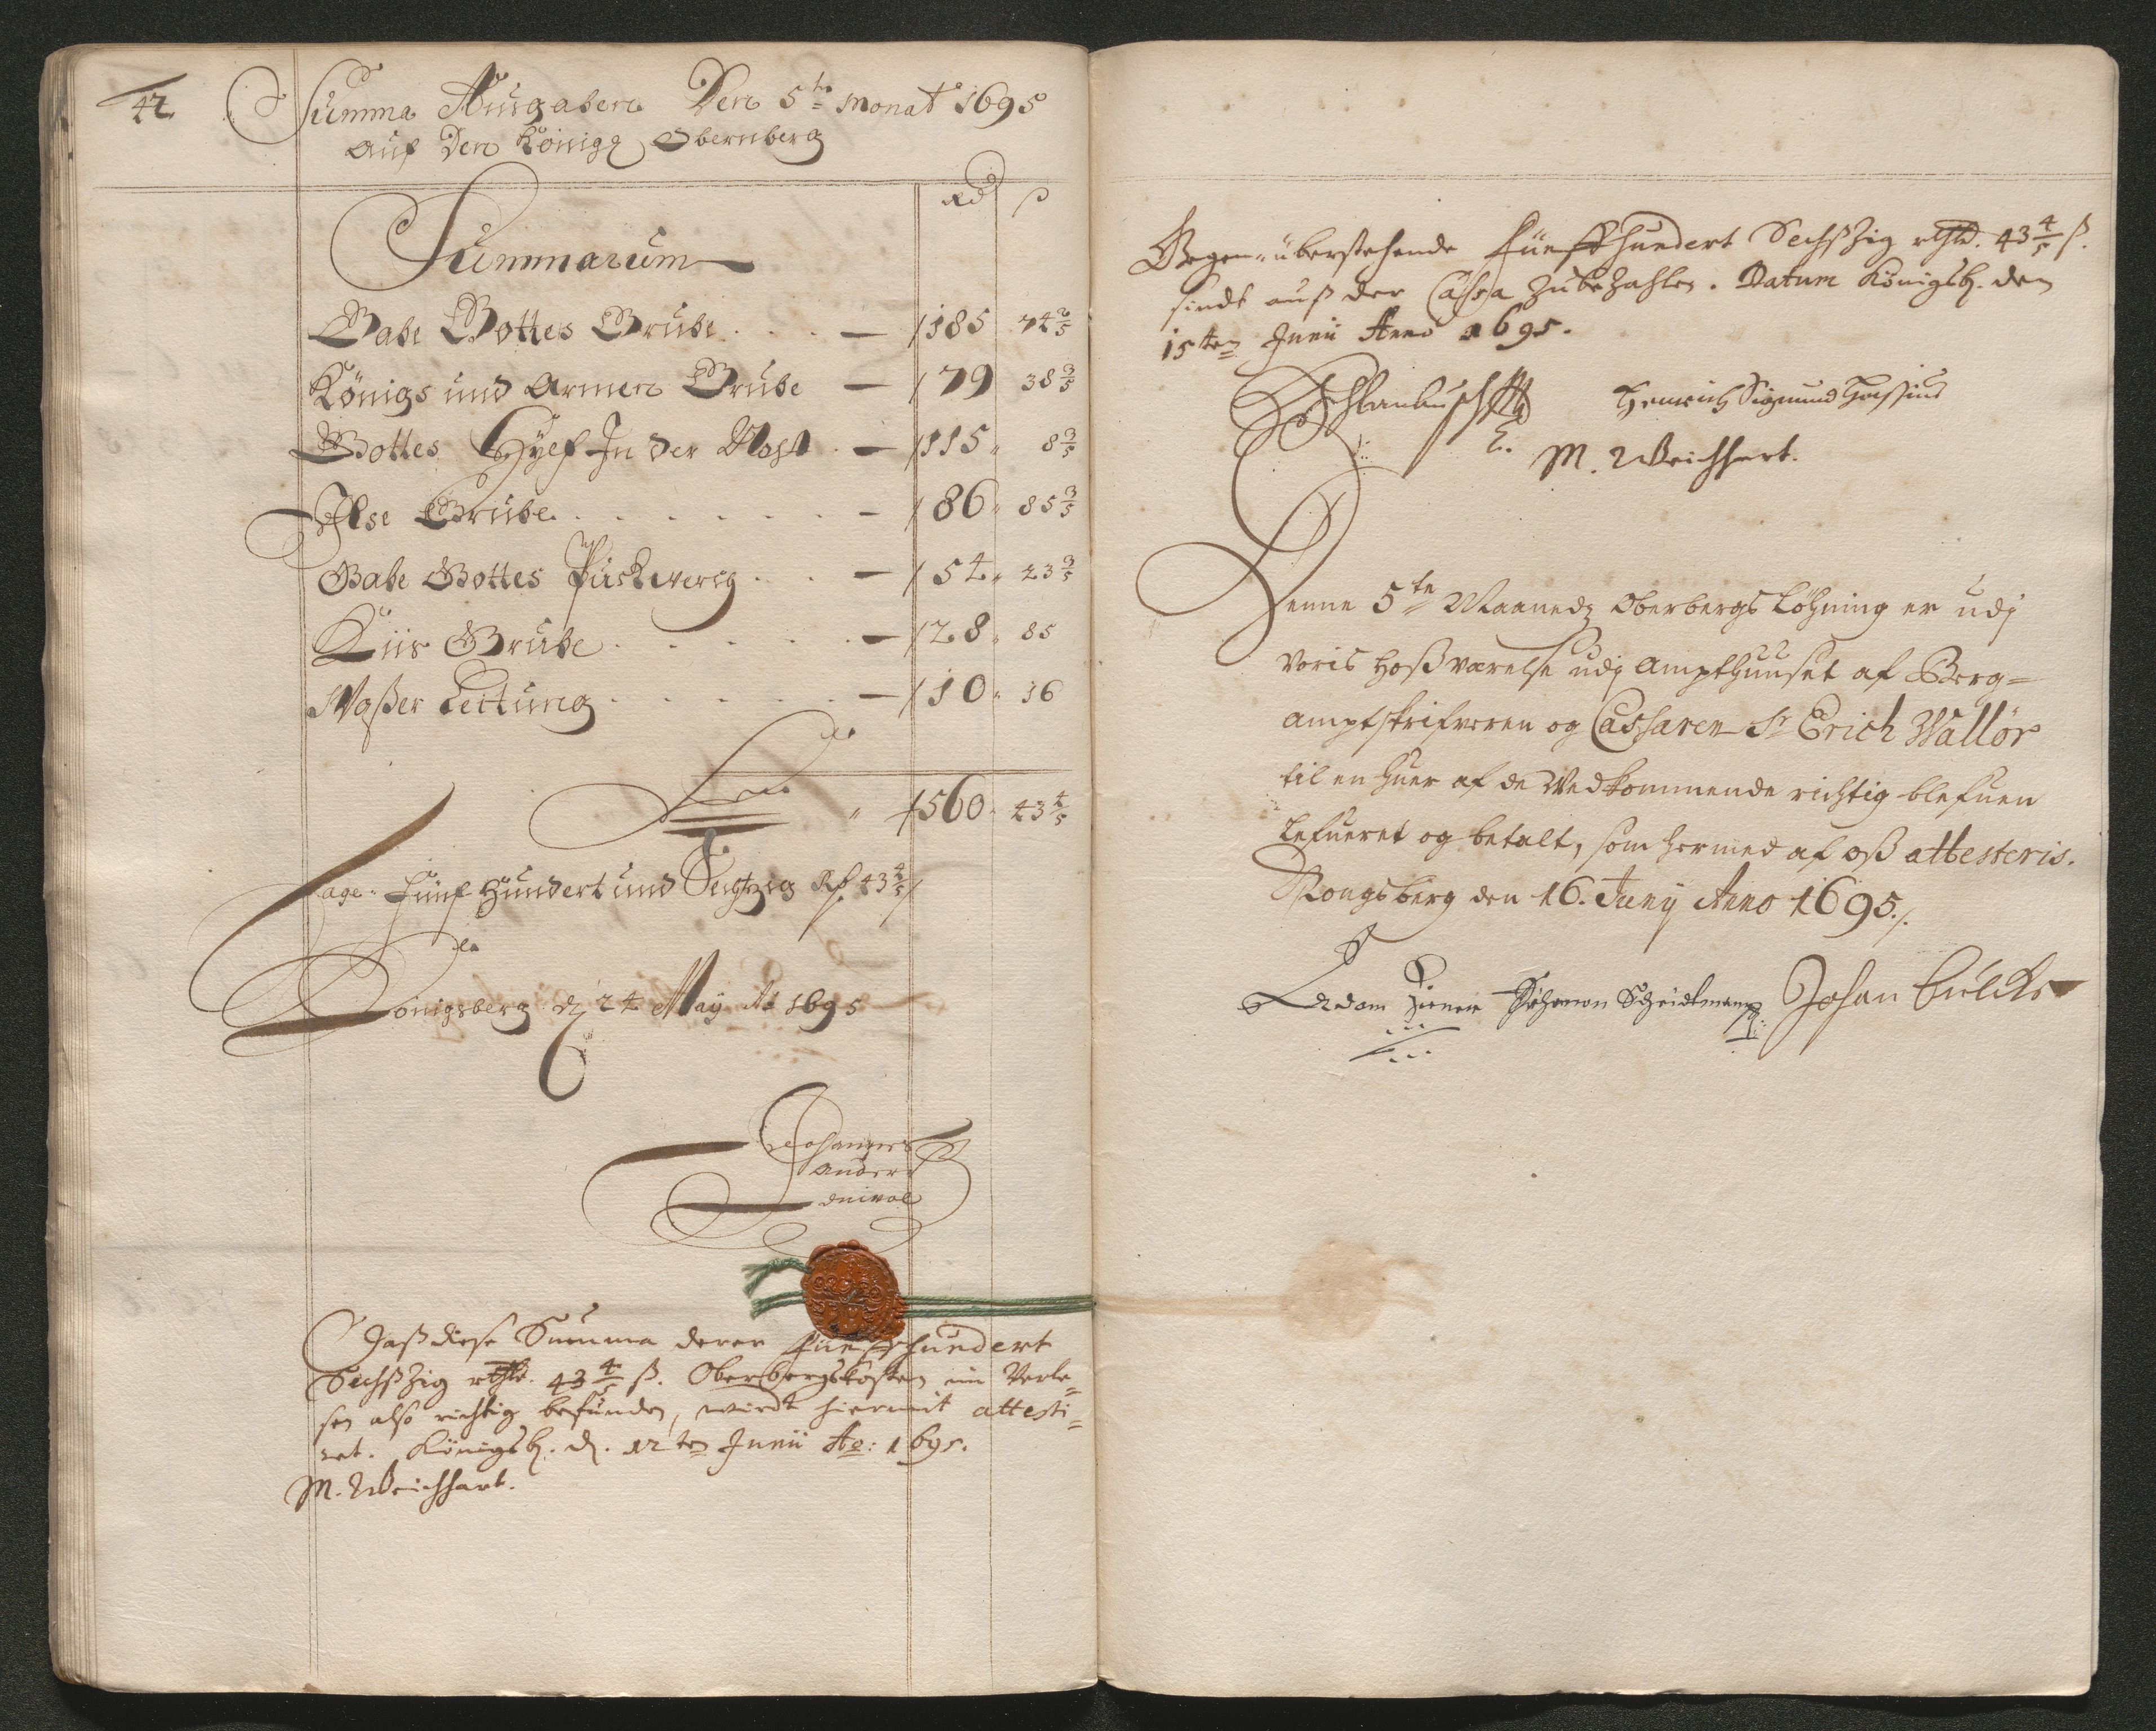 42
Summa Ausgaben Den 5te monat 1695
Auf Den Königg Obernberg
Rd ß
Summarum
Gabe Gottes Grube . . . — 185 74 2/5
Königs und Armen Grube — 79 38 3/5
Gottes Hylf In der Noht . — 115 " 8 3/5
Ilse Grube. . . . . . . . — 86 " 85 3/5
Gabe Gottes Puckwerch . . . — 54 " 23 3/5
Kiis Grube . . . . . — 28 " 85
Waßer Leitung . . . . . — 10 " 16
" 560 " 43 4/5
Sage " Fünf Hundert und Sechtzig Rß 43 4/5 ß
Königsberg d 24 May Ao 1695
Johannes
Anders
Daß diese Summa derer Fünffhundert
Sechßzig rthlr. 43 4/5 ß. Oberbergskosten im Verle=
sen also richtig befunden, wirdt hiermit attesti=
ret. Königsb. d. 12ten Junii Ao: 1695.
M. Weichhart.
Gegen=überstehende Fünffhundert Sechßzig rthlr. 43 4/5 ß.
sindt auß der Cassa zubezahlen. Datum Königsb. den
15ten Junii Anno 1695.
Schlanbusch Henrich Sigmund Hassius
M. Weichhart.
Denne 5te Maanedz Oberbergs Löhning er udj
Voris hoßværelse udj Ampthuuset af Berg=
amptskrifveren og Cassaren Sr Erich Wallør
til en huer af de Vedkommende richtig blefuen
lefueret og betalt, som hermed af oß attesteris.
Kongsberg den 16. Juny Anno 1695 ./.
Adam Scheidtmann Johan Cülcke